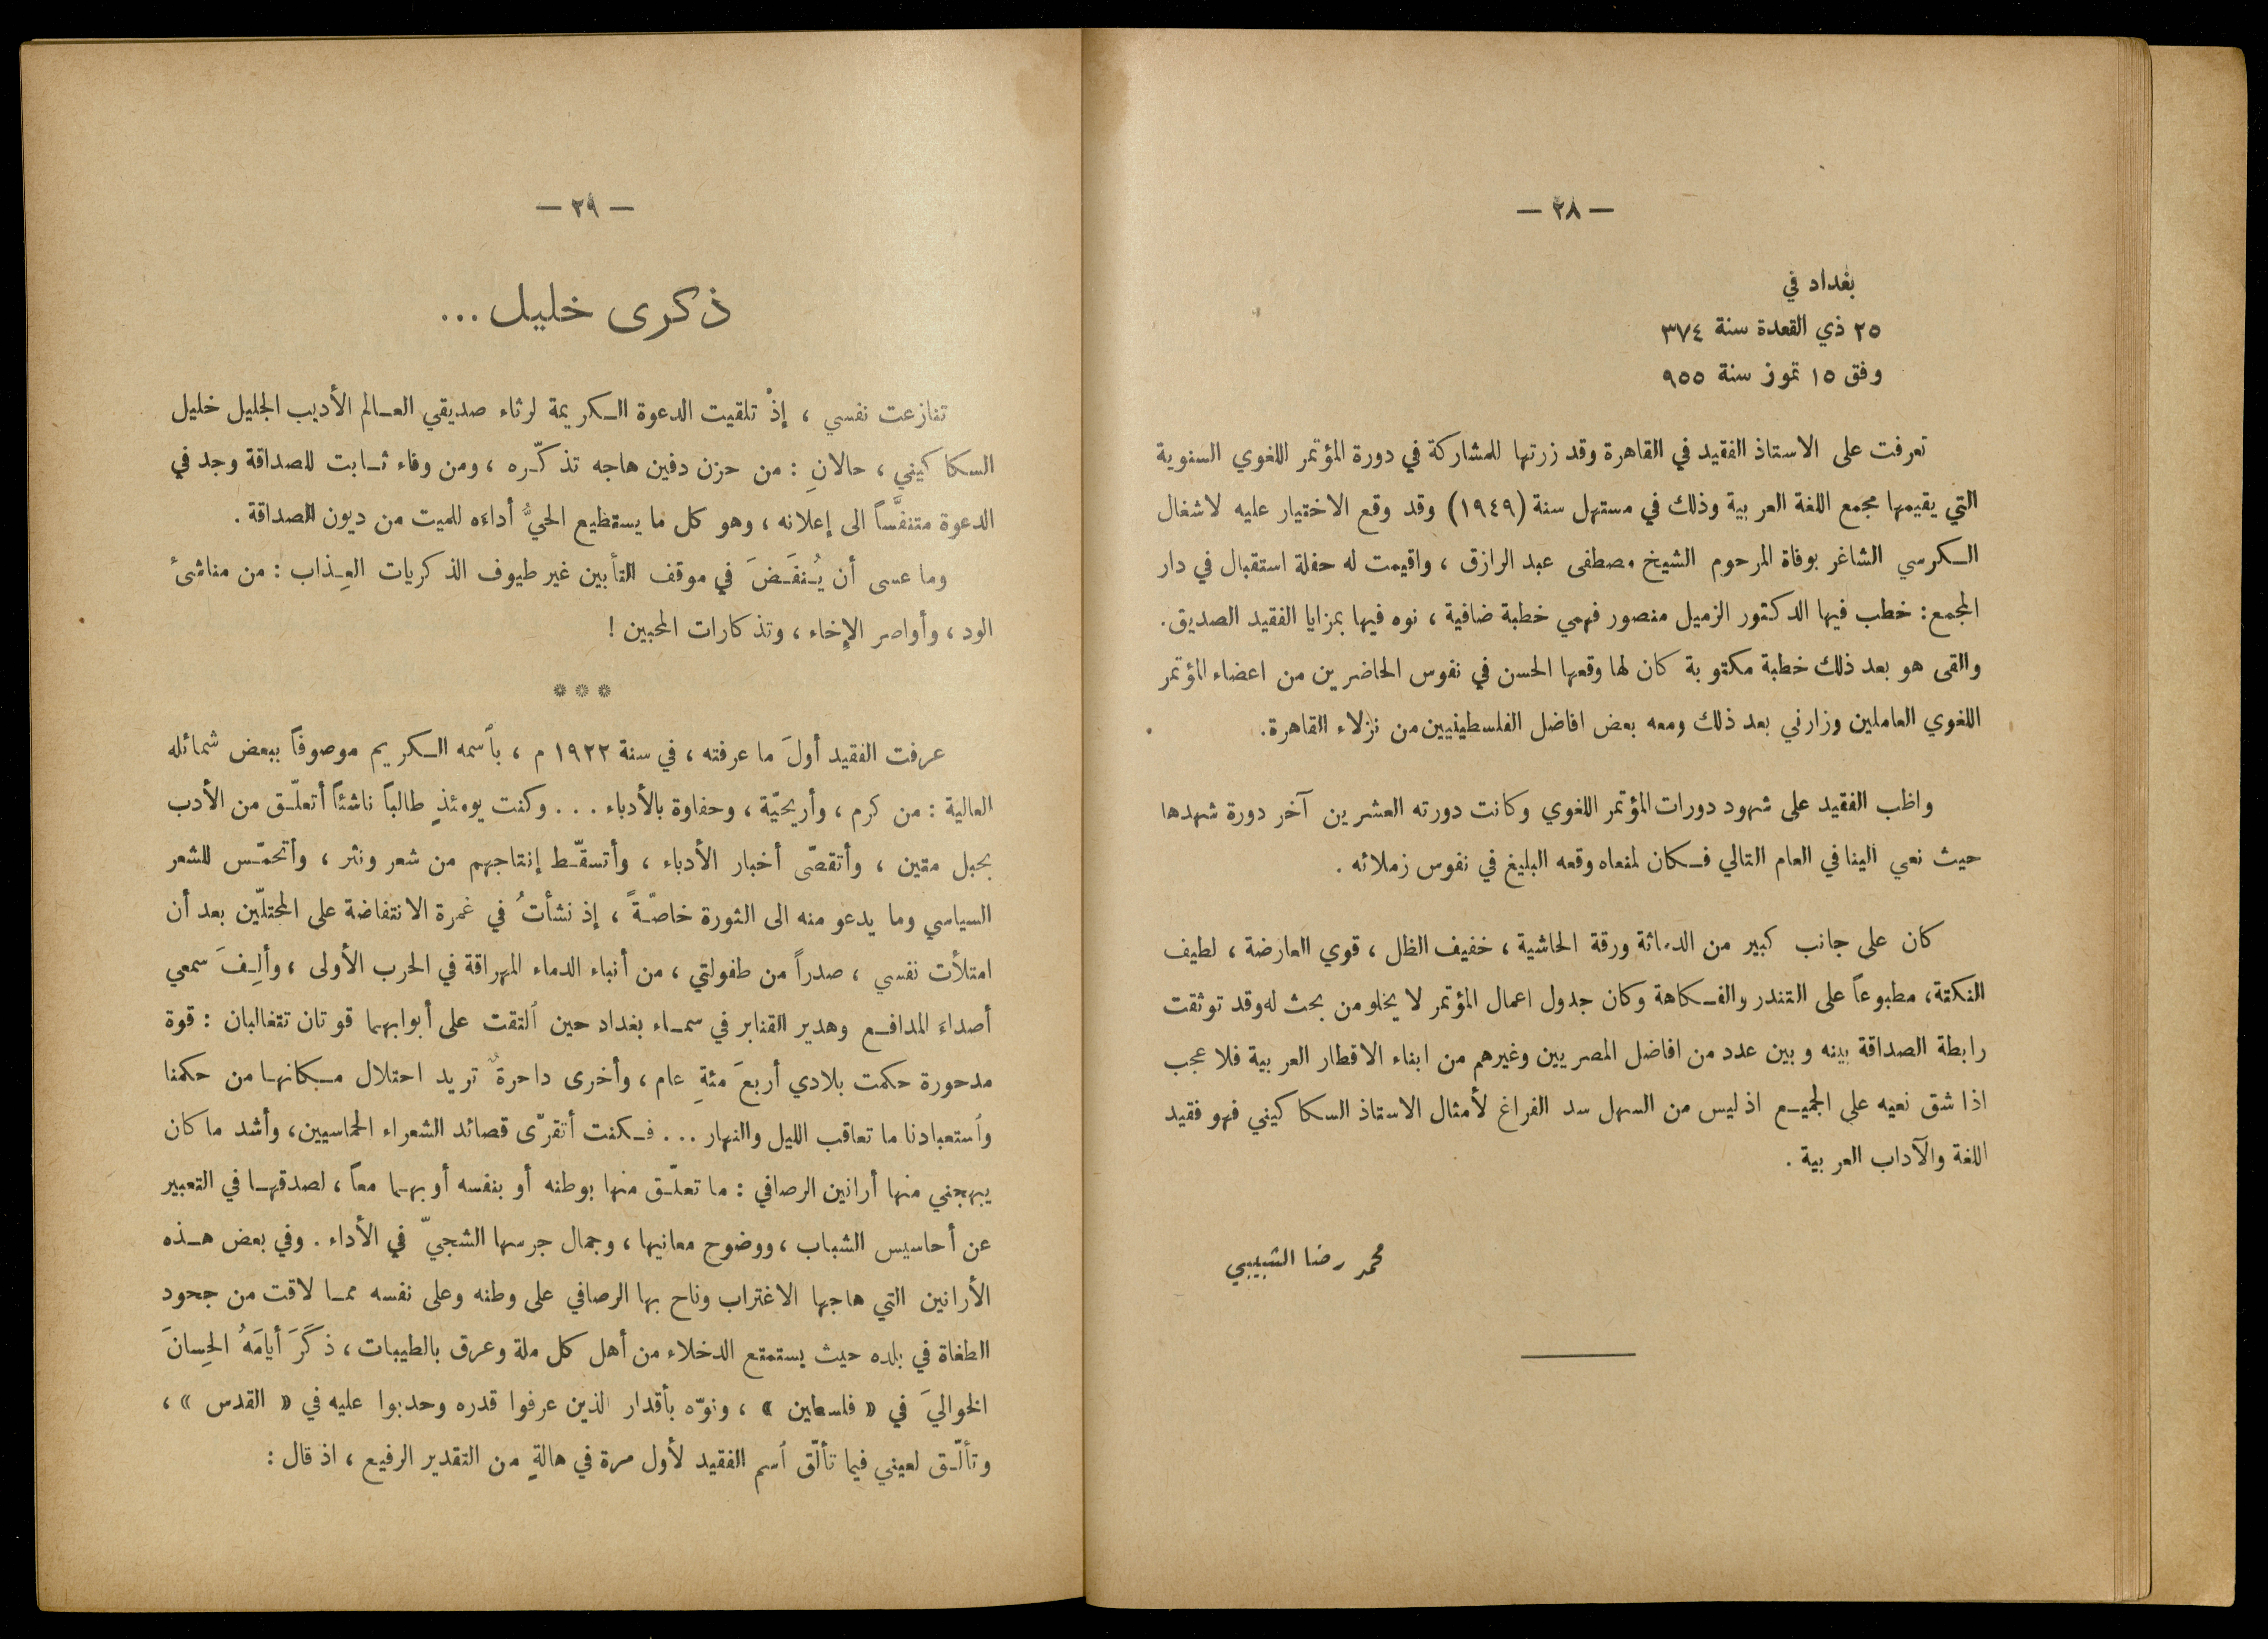 — ٢٨ —
بغداد في
٢٥ ذي القعدة سنة ٣٧٤
وفق ١٥ تموز سنة ٩٥٥
تعرفت على الاستاذ الفقيد في القاهرة وقد زرتها للمشاركة في دورة المؤتمر اللغوي السنوية
التي يقيمها مجمع اللغة العربية وذلك في مستهل سنة (١٩٤٩) وقد وقع الاختيار عليه لاشغال
الـكرسي الشاغر بوفاة المرحوم الشيخ مصطفى عبد الرازق ، واقيمت له حفلة استقبال في دار
المجمع : خطب فيها الدكتور الزميل منصور فهمي خطبة ضافية ، نوه فيها بمزايا الفقيد الصديق.
والقى هو بعد ذلك خطبة مكتوبة كان لها وقعها الحسن في نفوس الحاضرين من اعضاء المؤتمر
اللغوي العاملين وزارني بعد ذلك ومعه بعض افاضل الفلسطينيين من نزلاء القاهرة.
واظب الفقيد على شهود دورات المؤتمر اللغوي وكانت دورته العشرين آخر دورة شهدها
حيث نعي الينا في العام التالي فـكان لمنعاه وقعه البليغ في نفوس زملائه .
كان على جانب كبير من الدماثة ورقة الحاشية ، خفيف الظل ، قوي العارضة ، لطيف
النكتة، مطبوعاً على التندر والفـكاهة وكان جدول اعمال المؤتمر لا يخلو من بحث له وقد توثقت
رابطة الصداقة بينه وبين عدد من افاضل المصريين وغيرهم من ابناء الاقطار العربية فلا عجب
اذا شق نعيه على الجميـع اذ ليس من السهل سد الفراغ لأمثال الاستاذ السكاكيني فهو فقيد
اللغة والآداب العربية .
محمد رضا الشبيبي
— ٢٩ —
ذكرى خليل ...
تنازعت نفسي ، إذْ تلقيت الدعوة الـكريمة لرثاء صديقي العـالم الأديب الجليل خليل
السكاكيني ، حالانِ : من حزن دفين هاجه تذكّـره ، ومن وفاء ثـابت للصداقة وجد في
الدعوة متنفَّساً الى إعلانه ، وهو كل ما يستطيع الحيُّ أداءَه للميت من ديون الصداقة .
وما عسى أن يُـنفَـضَ في موقف التأبين غير طيوف الذكريات العِـذاب : من مناشئ
الود ، وأواصر الإِخاء ، وتذكارات المحبين !
* * *
عرفت الفقيد أولَ ما عرفته ، في سنة ١٩٢٢ م ، بٱسمه الـكريم موصوفاً ببعض شمائله
العالية : من كرم ، وأريحيّة ، وحفاوة بالأدباء ... وكنت يومئذٍ طالباً ناشئاً أتعلّـق من الأدب
بحبل متين ، وأتقصّى أخبار الأدباء ، وأتسقّـط إنتاجهم من شعر ونثر ، وأتحمّـس للشعر
السياسي وما يدعو منه الى الثورة خاصّـةً ، إذ نشأتُ في غمرة الانتفاضة على المحتلّين بعد أن
امتلأت نفسي ، صدراً من طفولتي ، من أنباء الدماء المهراقة في الحرب الأولى ، وألِـفَ سمعي
أصداءَ المدافـع وهدير القنابر في سمـاء بغداد حين ٱلتقت على أبوابهما قوتان تتغالبان : قوة
مدحورة حكمت بلادي أربعَ مئةِ عام ، وأخرى داحرةٌ تريد احتلال مـكانهـا من حكمنا
وٱستعبادنا ما تعاقب الليل والنهار ... فـكنت أتقرّى قصائد الشعراء الحماسيين، وأشد ما كان
يبهجني منها أرانين الرصافي : ما تعلّـق منها بوطنه أو بنفسه أو بهـما معاً ، لصدقهـا في التعبير
عن أحاسيس الشباب ، ووضوح معانيها ، وجمال جرسها الشجيّ في الأداء . وفي بعض هـذه
الأرانين التي هاجها الاغتراب وناح بها الرصافي على وطنه وعلى نفسه ممـا لاقت من جحود
الطغاة في بلده حيث يستمتع الدخلاء من أهل كل ملة وعرق بالطيبات ، ذكَرَ أيامَهُ الحِسانَ
الخواليَ في « فلسطين » ، ونوّه بأقدار الذين عرفوا قدره وحدبوا عليه في « القدس » ،
وتألّـق لعيني فيما تألّق ٱسم الفقيد لأول مرة في هالةٍ من التقدير الرفيع ، اذ قال :